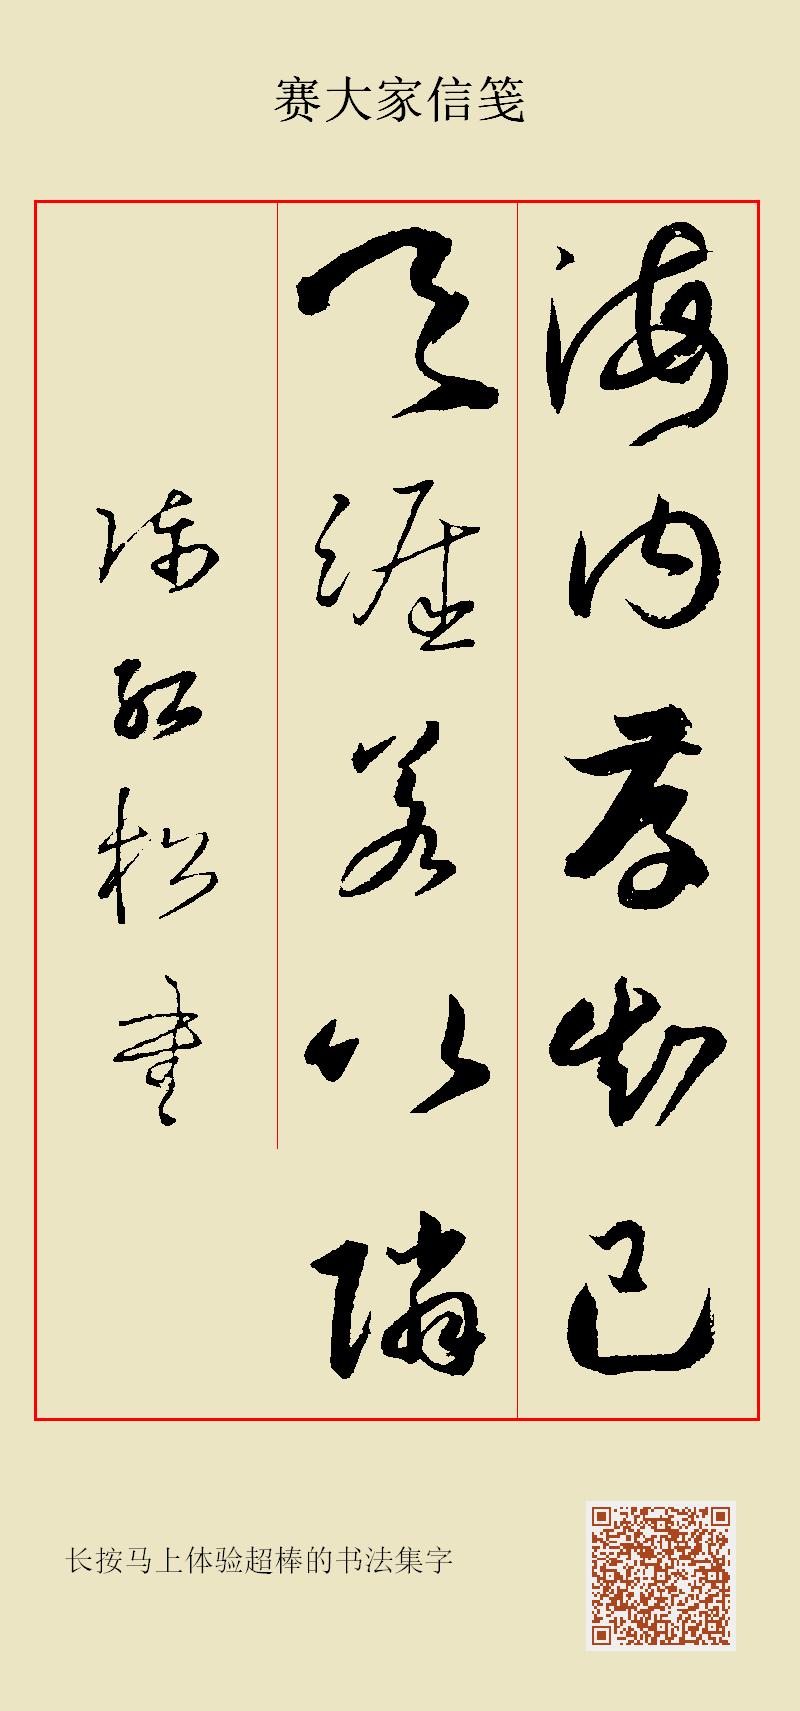 赛大家信笺
海内存知己
天涯若比隣
陳紅松書
长按马上体验超棒的书法集字